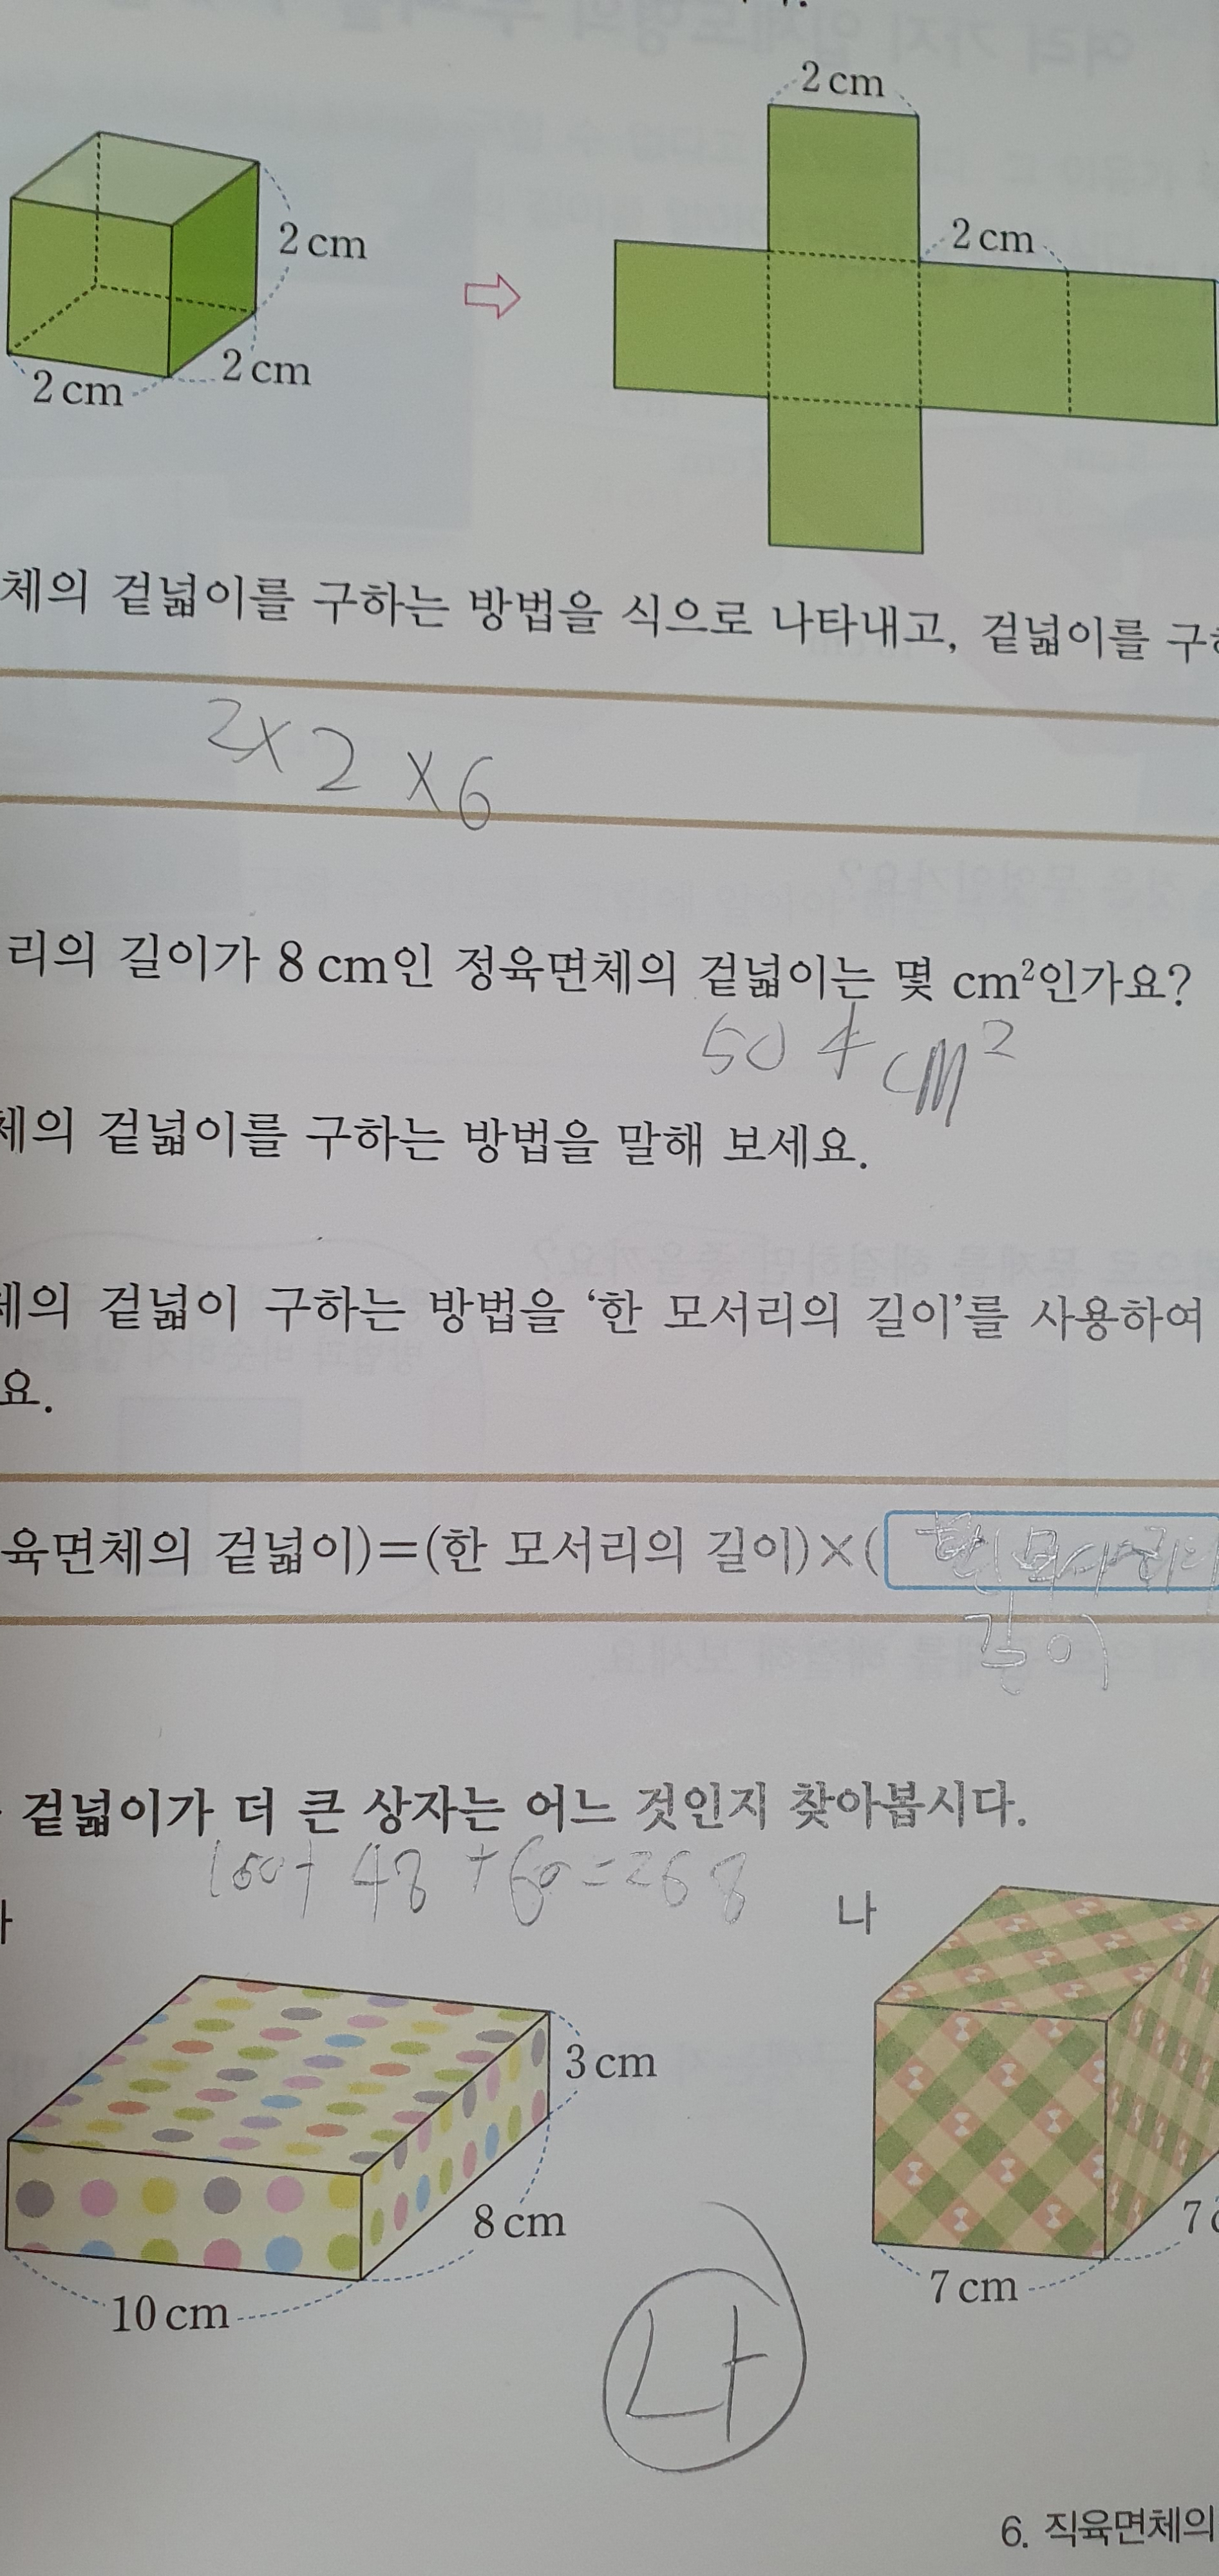 2 cm
2 cm
2 cm
2 cm
2 cm
체의 겉넓이를 구하는 방법을 식으로 나타내고, 겉넓이를 구
2×2×6
리의 길이가 8 cm인 정육면체의 겉넓이는 몇 cm²인가요?
504 cm²
체의 겉넓이를 구하는 방법을 말해 보세요.
체의 겉넓이 구하는 방법을 ‘한 모서리의 길이’를 사용하여
요.
육면체의 겉넓이)=(한 모서리의 길이)×( 한 모서리의
길이
겉넓이가 더 큰 상자는 어느 것인지 찾아봅시다.
160+48+60=268
나
3 cm
8 cm
7
10 cm
7 cm
나
6. 직육면체의